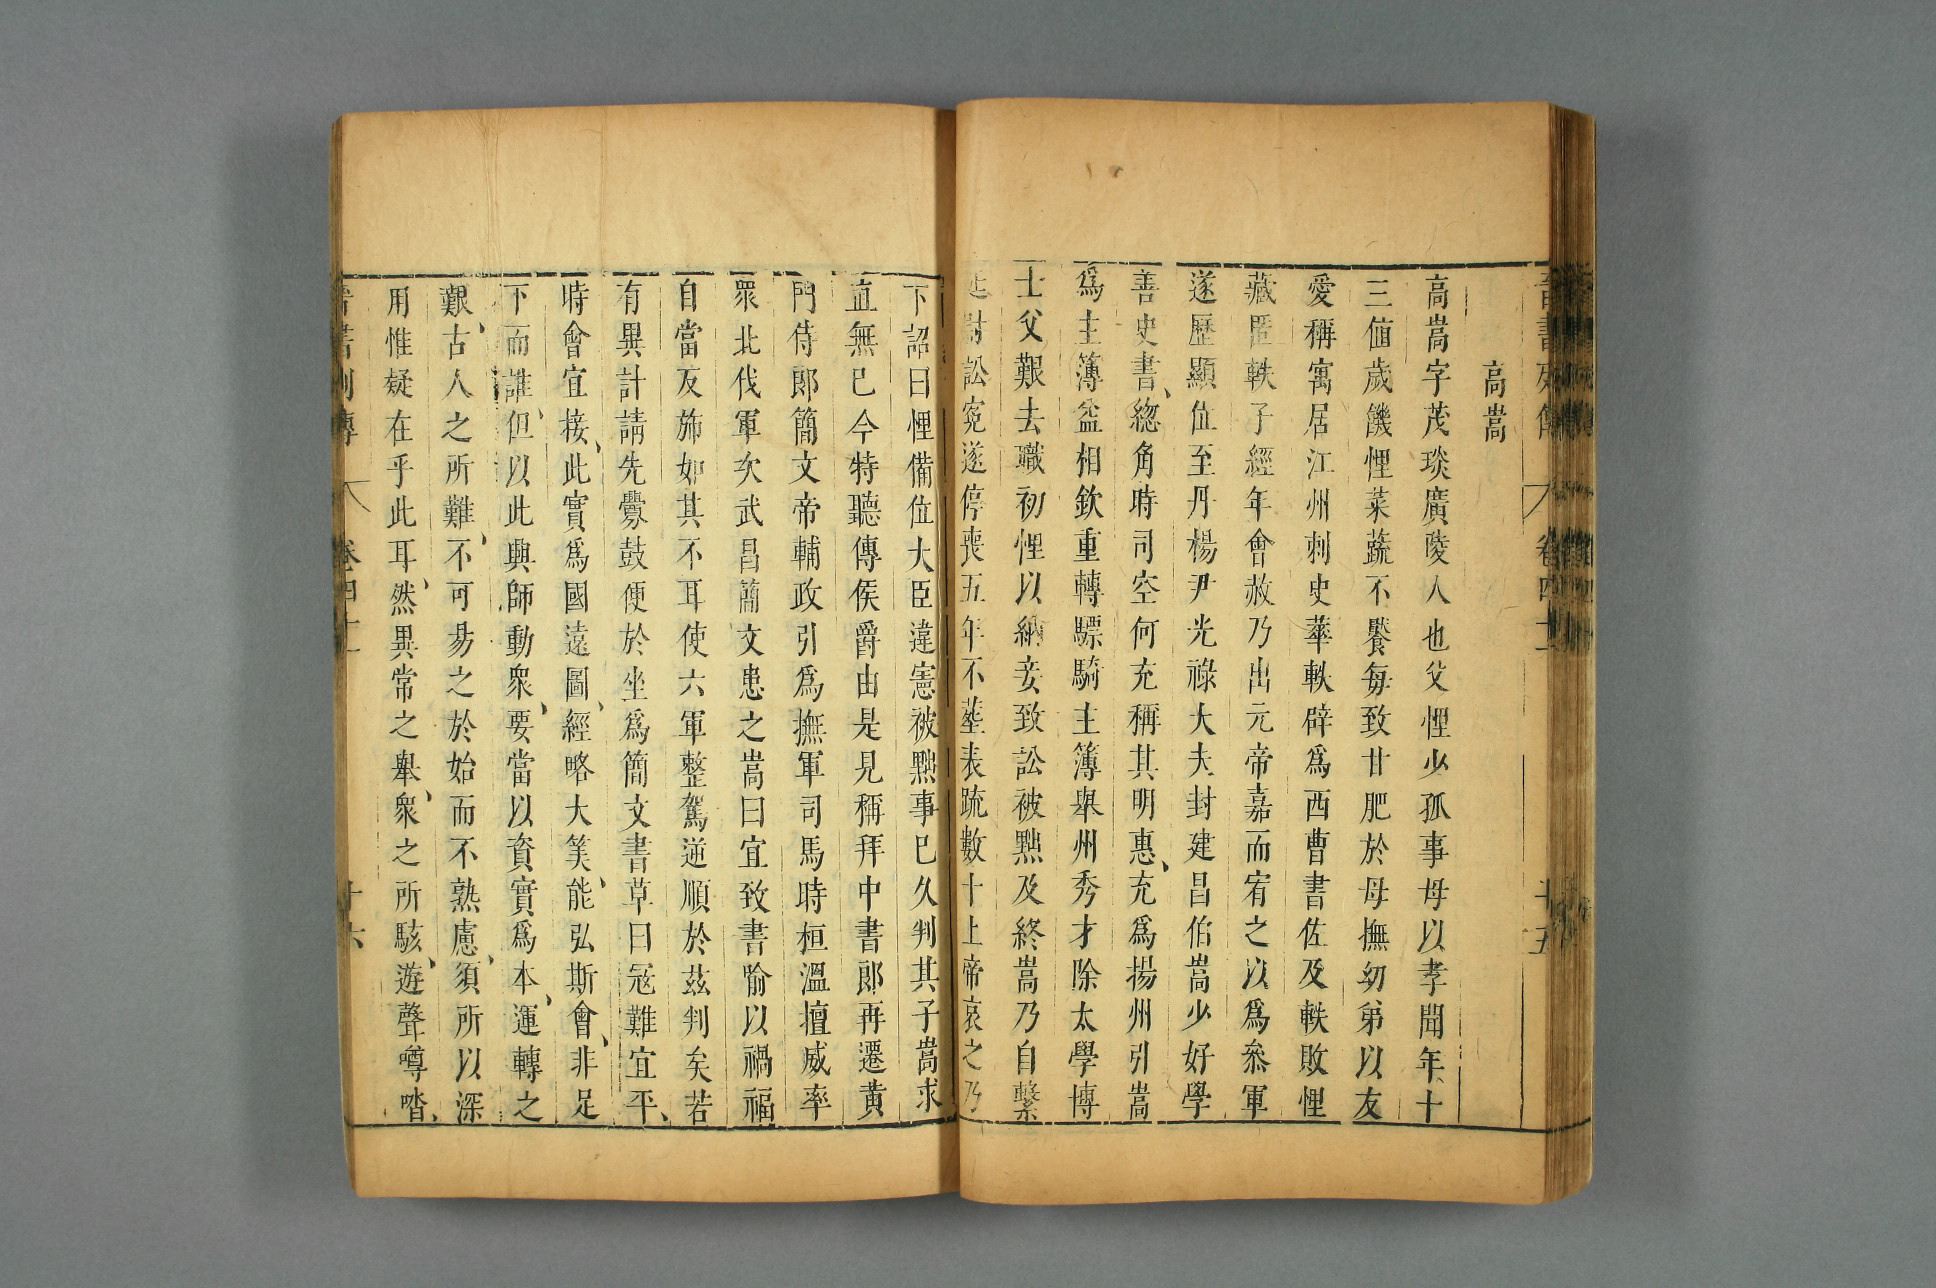 高嵩
高嵩字茂琰廣陵人也父悝少孤事母以孝聞年十
三值歲饑悝菜蔬不饜每致甘肥於母撫幼弟以友
愛稱寓居江州刺史華軼辟爲西曹書佐及軼敗悝
藏匿軼子經年會赦乃出元帝嘉而宥之以爲參軍
遂歷顯位至丹楊尹光祿大夫封建昌伯嵩少好學
善史書總角時司空何充稱其明惠充爲揚州引嵩
爲主簿益相欽重轉驃騎主簿舉州秀才除太學博
士父艱去職初悝以納妾致訟被黜及終嵩乃自繫
廷尉訟冤遂停喪五年不葬表疏數十上帝哀之乃
下詔曰悝備位大臣違憲被黜事巳久判其子嵩求
直無已今特聽傳侯爵由是見稱拜中書郎再遷黃
門侍郎簡文帝輔政引爲撫軍司馬時桓溫擅威率
衆北伐軍次武昌簡文患之嵩曰宜致書喻以禍福
自當反斾如其不耳使六軍整駕逆順於茲判矣若
有異計請先釁鼓便於坐爲簡文書草曰冦難宜平、
時會宜接、此實爲國遠圖、經略大筭、能弘斯會、非足
下而誰、但以此興師動衆、要當以資實爲本、運轉之
艱、古人之所難、不可易之於始而不熟慮、須所以深
用惟疑在乎此耳、然異常之舉、衆之所駭、遊聲噂㳫、
晉書列傳 卷四十一 十六